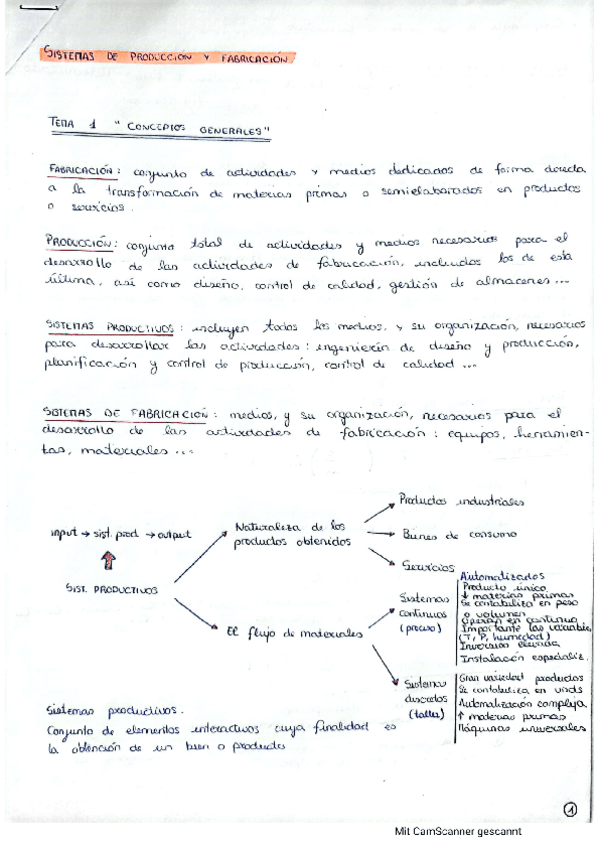 SISTEMAS DE PRODUCCIÓN Y FABRICACIÓN.
TEMA 1 "CONCEPTOS GENERALES"
FABRICACIÓN: conjunto de actividades y medios dedicados de forma directa
a la transformación de materias primas o semielaborados en productos
o servicios.
PRODUCCIÓN: conjunto total de actividades y medios necesarios para el
desarrollo de las actividades de fabricación, incluidos los de esta
última, así como diseño, control de calidad, gestión de almacenes ...
SISTEMAS PRODUCTIVOS: incluyen todos los medios, y su organización, necesarios
para desarrollar las actividades: ingeniería de diseño y producción,
planificación y control de producción, control de calidad ...
SISTEMAS DE FABRICACIÓN: medios, y su organización, necesarios para el
desarrollo de las actividades de fabricación: equipos, herramien-
tas, materiales ...
input → sist. prod → output
SIST. PRODUCTIVOS
Naturaleza de los
productos obtenidos
Productos industriales
Bienes de consumo
Servicios
El flujo de materiales
Sistemas
continuos
(proceso)
Automatizados
Producto único
↓ materias primas
Se contabiliza en peso
o volumen
Operan en continuo
Importante las variables
(T, P, humedad)
Inversión elevada
Instalación especializ.
Sistemas
discretos
(taller)
Gran variedad productos
Se contabiliza en unids
Automatización compleja
↑ materias primas
Máquinas universales
Sistemas productivos.
Conjunto de elementos interactivos cuya finalidad es
la obtención de un bien o producto
1
Mit CamScanner gescannt